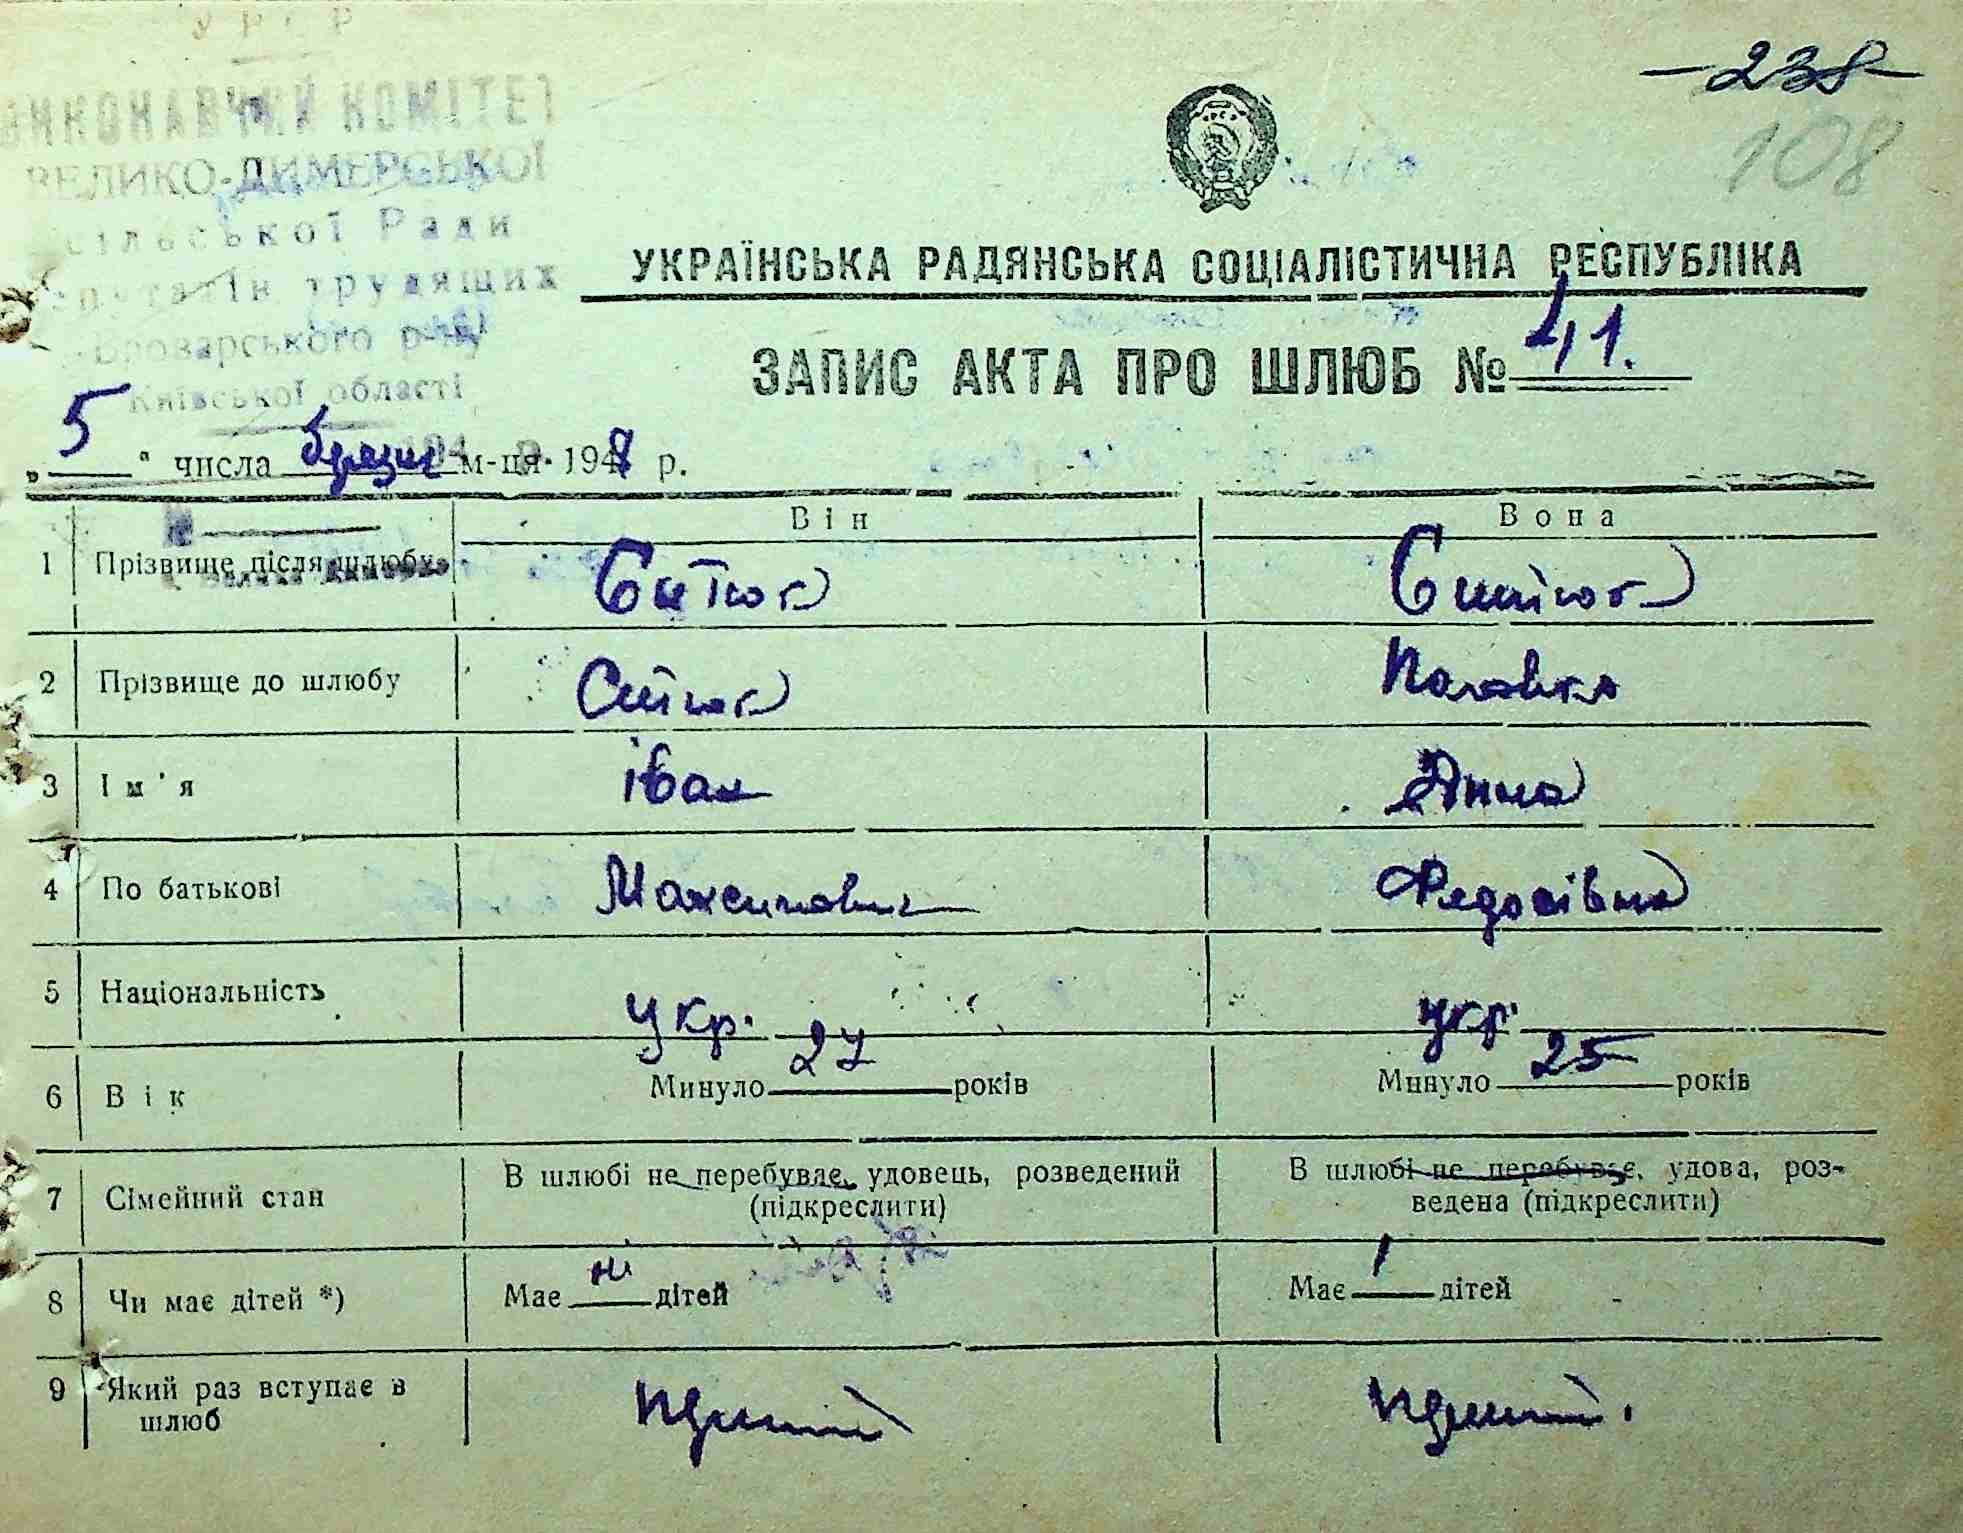 УРСР
ВИКОНАВЧИЙ КОМІТЕТ
ВЕЛИКО-ДИМЕРСЬКОЇ
сільської Ради
депутатів трудящих
Броварського р-ну
Київської області
238
108
УКРАЇНСЬКА РАДЯНСЬКА СОЦІАЛІСТИЧНА РЕСПУБЛІКА
ЗАПИС АКТА ПРО ШЛЮБ № 41.
„5" числа березня м-ця 1948 р.
Він Вона
1 Прізвище після шлюбу
2 Прізвище до шлюбу
3 Ім'я Іван Анна
4 По батькові Максимович Федосівна
5 Національність укр. укр.
6 Вік Минуло 27 років Минуло 25 років
7 Сімейний стан В шлюбі не перебуває, удовець, розведений (підкреслити) В шлюбі не перебуває, удова, розведена (підкреслити)
8 Чи має дітей *) Має ні дітей Має 1 дітей
9 Який раз вступає в шлюб перший перший.